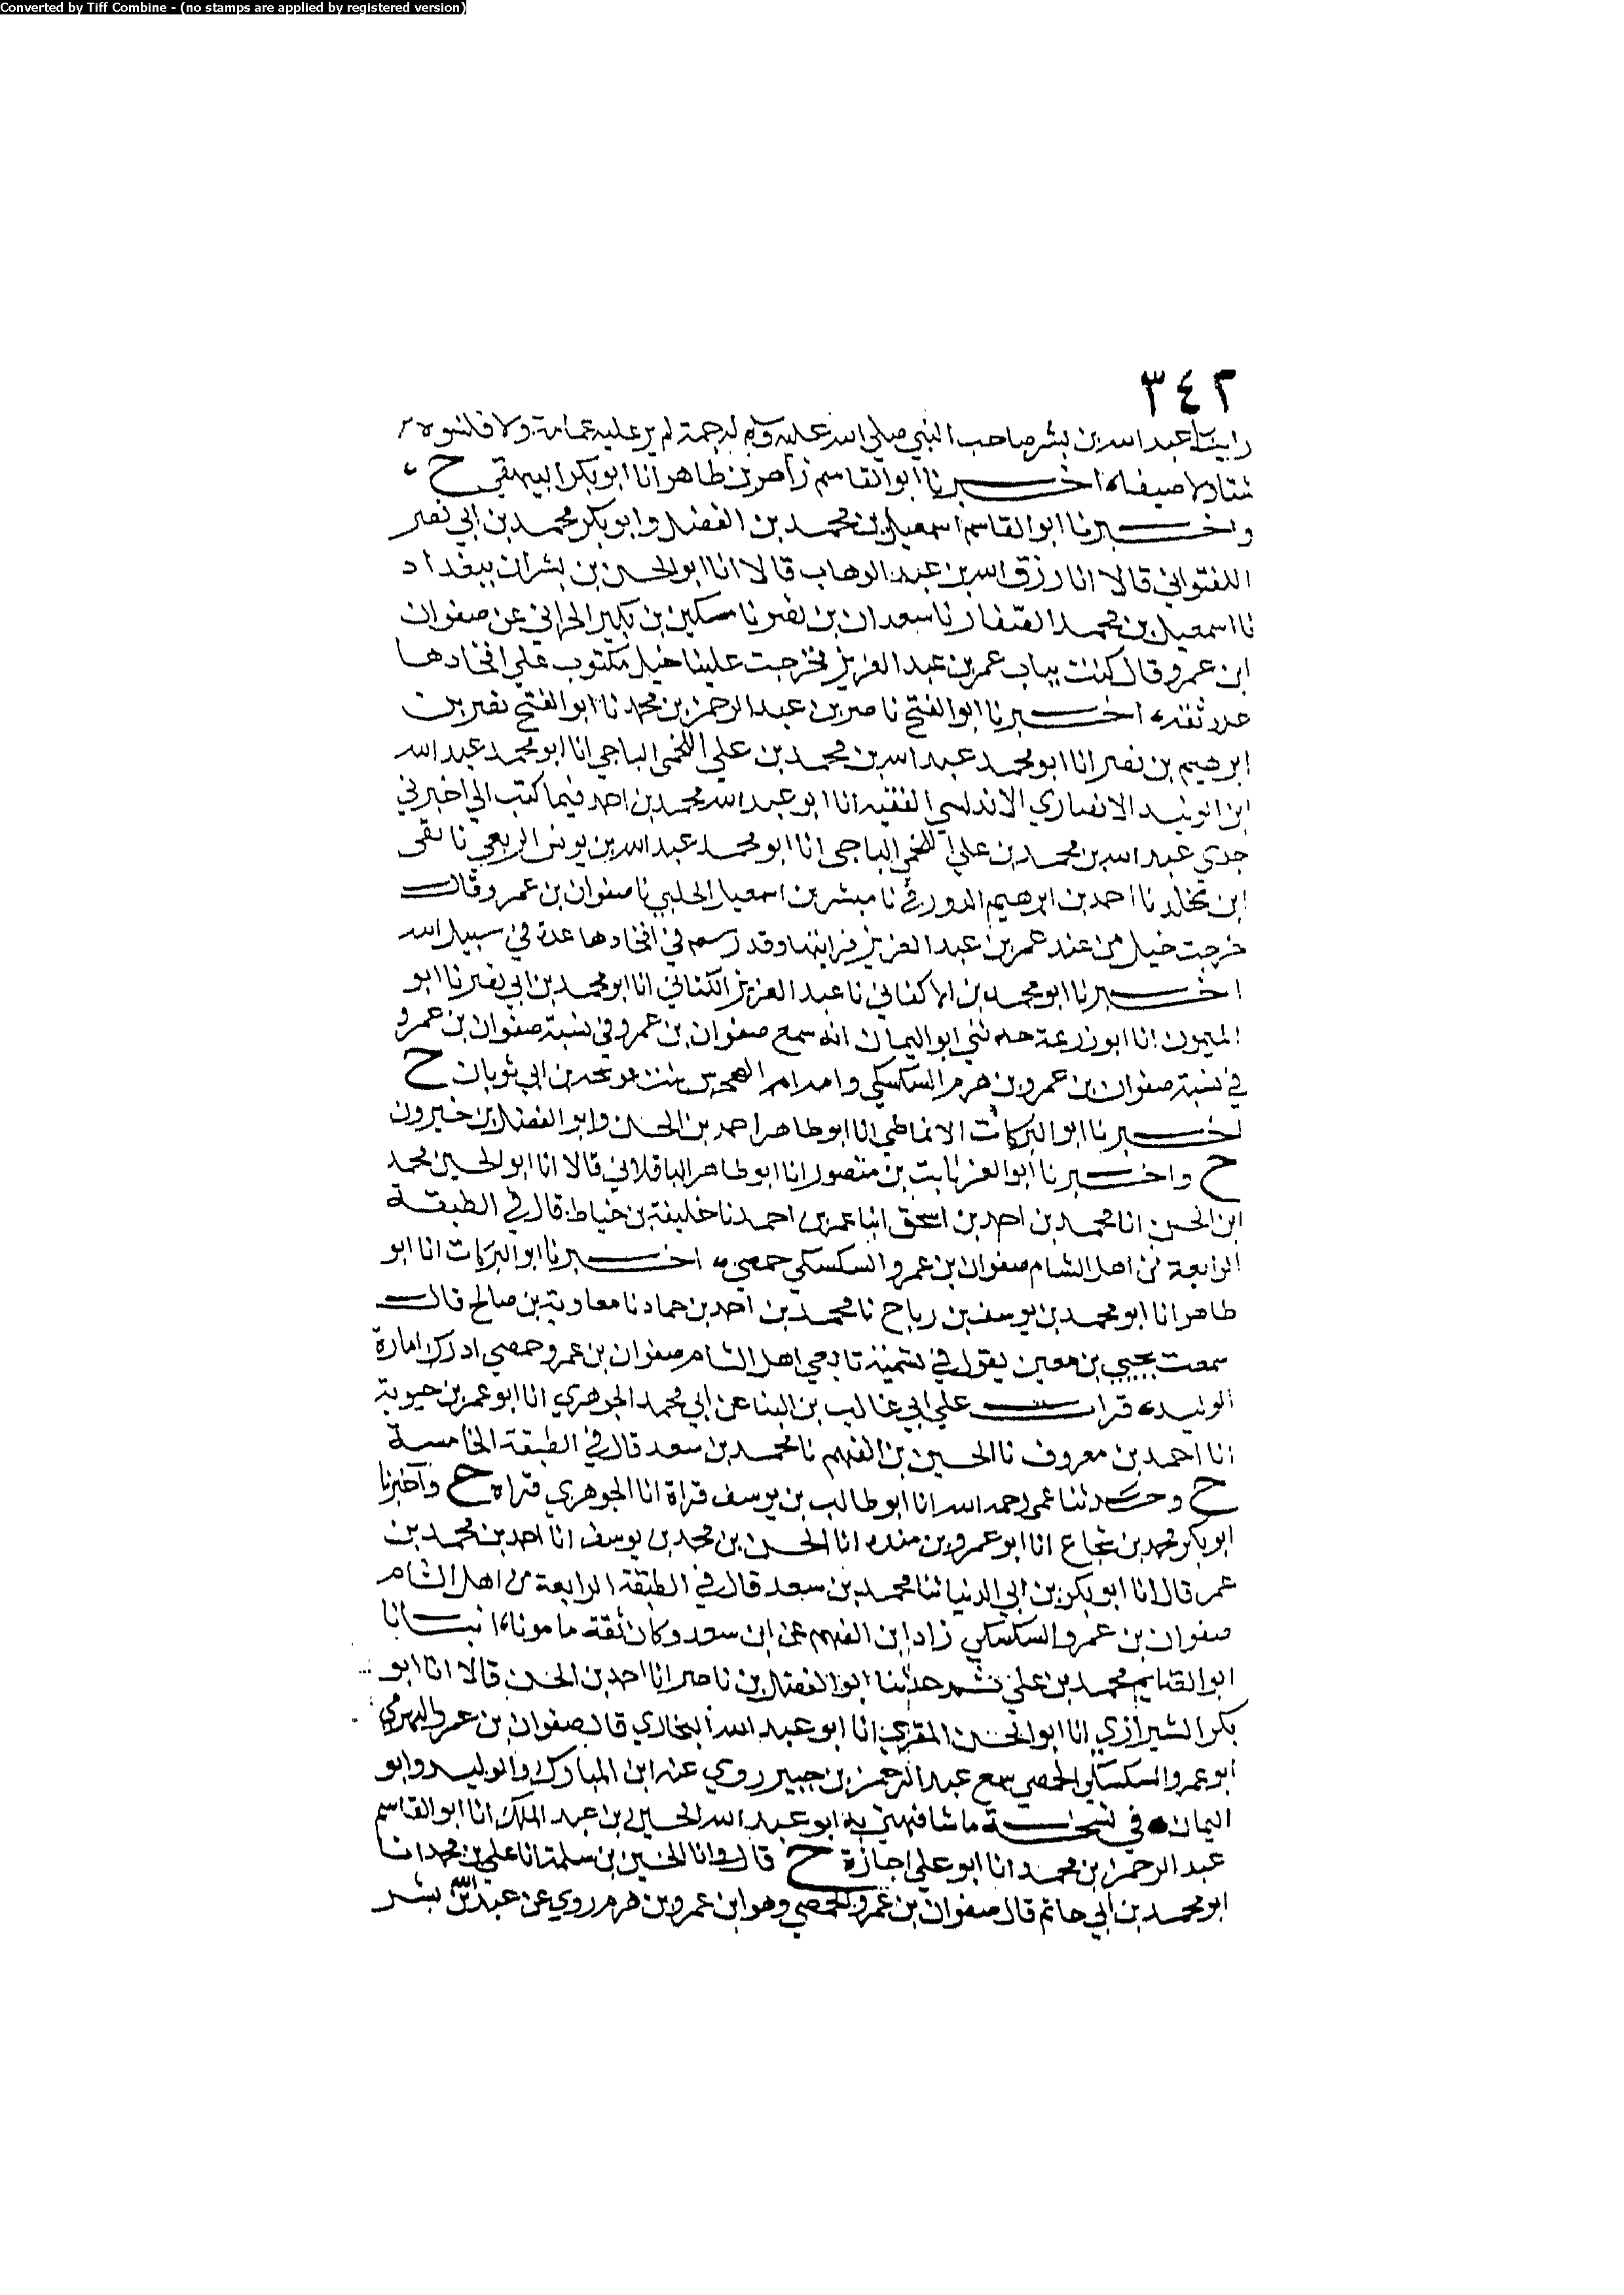 Converted by Tiff Combine - (no stamps are applied by registered version)
٣٤٢
رايت عبد الله بن بشر صاحب النبي صلى الله عليه وسلم له جمة لم ير عليه عمامة ولا قلنسوه
شتاء ولا صيفا اخبرنا ابو القاسم زاهر بن طاهر انا ابو بكر البيهقي ح
واخبرنا ابو القاسم اسمعيل بن محمد بن الفضل وابو بكر محمد بن ابي نصر
اللفتواني قالا انا رزق الله بن عبد الوهاب قالا انا ابو الحسن بن بشران ببغداد
نا اسمعيل بن محمد الصفار نا سعدان بن نصر نا مسكين بن بكير الحراني عن صفوان
ابن عمرو قال كنت بباب عمر بن عبد العزيز فخرجت علينا خيل مكتوب على افخادها
عدد لله اخبرنا ابو الفتح ناصر بن عبد الرحمن بن محمد نا ابو الفتح نصر بن
ابرهيم بن نصر انا ابو محمد عبد الله بن محمد بن علي اللخمي الباجي انا ابو محمد عبد الله
ابن الوليد الانصاري الاندلسي الفقيه انا ابو عبد الله محمد بن احمد فيما كتب الي اخبرني
جدي عبد الله بن محمد بن علي اللخمي الباجي انا ابو محمد عبد الله بن يونس الربعي نا بقى
ابن مخلد نا احمد بن ابرهيم الدورقي نا مبشر بن اسمعيل الحلبي نا صفوان بن عمرو قال
خرجت خيل من عند عمر بن عبد العزيز فرايتها وقد رسم في افخادها عدة في سبيل الله
اخبرنا ابو محمد بن الاكفاني نا عبد العزيز الكناني انا ابو محمد بن ابي نصر نا ابو
الميمون انا ابو زرعة حدثني ابو اليمان انه سمع صفوان بن عمرو في نسبة صفوان بن عمرو
في نسبة صفوان بن عمرو بن هرم السكسكي وامه ام بنت بن ابي ثوبان ح
اخبرنا ابو البركات الانماطي انا ابو طاهر احمد بن الحسن وابو الفضل بن خيرون
ح واخبرنا ابو العز ثابت بن منصور انا ابو طاهر الباقلاني قالا انا ابو الحسين محمد
ابن الحسن انا محمد بن احمد بن اسحق انبا عمر بن احمد نا خليفة بن خياط قال في الطبقة
الرابعة من اهل الشام صفوان بن عمرو السكسكي حمصي اخبرنا ابو البركات انا ابو
طاهر انا ابو محمد بن يوسف بن رباح نا محمد بن احمد بن حماد نا معاوية بن صالح قال
سمعت يحيي بن معين يقول في تسمية تابعي اهل الشام صفوان بن عمرو حمصي ادرك امارة
الوليد قرات علي ابي غالب بن البنا عن ابي محمد الجوهري انا ابو عمر بن حيوية
انا احمد بن معروف نا الحسين بن الفهم نا محمد بن سعد قال في الطبقة الخامسة
ح وحدثنا عمي رحمه الله انا ابو طالب بن يوسف قراة انا الجوهري قراه ح واخبرنا
ابو بكر محمد بن شجاع انا ابو عمرو بن منده انا الحسن بن محمد بن يوسف انا احمد بن محمد بن
عمر قال انا ابو بكر بن ابي الدنيا ثنا محمد بن سعد قال في الطبقة الرابعة من اهل الشام
صفوان بن عمرو السكسكي زاد ابن الفهم عن ابن سعد وكان ثقة مامونا انبانا
ابو الغنايم محمد بن علي ثم حدثنا ابو الفضل بن ناصر انا احمد بن الحسن قالا انا ابو
بكر الشيرازي انا ابو الحسن المقري انا ابو عبد الله البخاري قال صفوان بن عمرو
ابو عمرو السكسكي الحمصي سمع عبد الرحمن بن جبير روي عنه ابن المبارك والوليد وابو
اليمان في نسخة ما شافهني به ابو عبد الله الحسين بن عبد الملك انا ابو القاسم
عبد الرحمن بن محمد انا ابو علي اجازة ح قال وانا الحسين بن سلمة انا علي بن محمد انا
ابو محمد بن ابي حاتم قال صفوان بن عمرو الحمصي وهو ابن عمرو بن هرم روي عن عبد الله بن بشر